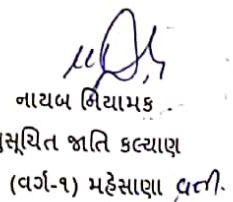 નાયબ નિયામક
સૂચિત જાતિ કલ્યાણ
(વર્ગ-૧) મહેસાણા વતી.